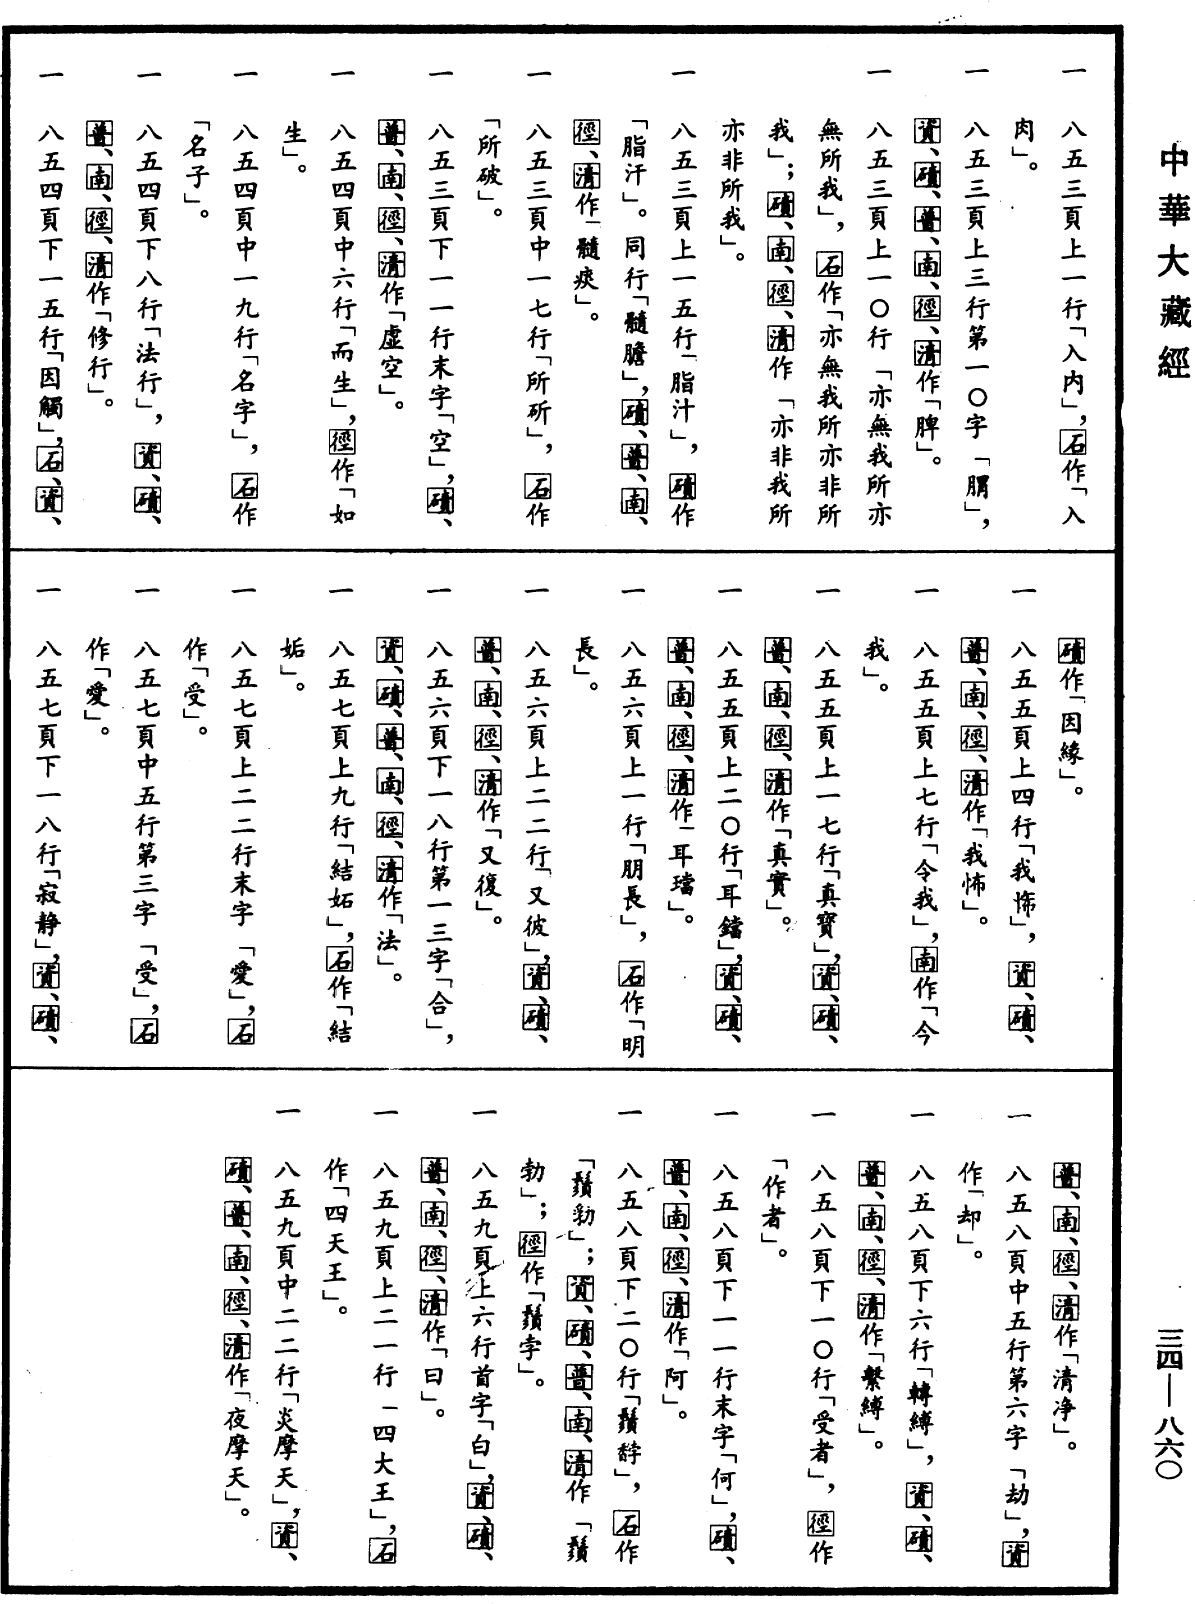 中華大藏經
三四—八六〇
一　八五三頁上一行「入内」，石作「入
肉」。
一　八五三頁上三行第一〇字「腪」，
資、磧、普、南、徑、清作「脾」。
一　八五三頁上一〇行「亦無我所亦
無所我」，石作「亦無我所亦非所
我」；磧、南、徑、清作「亦非我所
亦非所我」。
一　八五三頁上一五行「脂汁」，磧作
「脂汗」。同行「髓膽」，磧、普、南、
徑、清作「髓痰」。
一　八五三頁中一七行「所斫」，石作
「所破」。
一　八五三頁下一一行末字「空」，磧、
普、南、徑、清作「虛空」。
一　八五四頁中六行「而生」，徑作「如
生」。
一　八五四頁中一九行「名字」，石作
「名子」。
一　八五四頁下八行「法行」，資、磧、
普、南、徑、清作「修行」。
一　八五四頁下一五行「因觸」，石、資、
磧作「因緣」。
一　八五五頁上四行「我悕」，資、磧、
普、南、徑、清作「我怖」。
一　八五五頁上七行「令我」，南作「今
我」。
一　八五五頁上一七行「真寶」，資、磧、
普、南、徑、清作「真實」。
一　八五五頁上二〇行「耳鐺」，資、磧、
普、南、徑、清作「耳璫」。
一　八五六頁上一行「朋長」，石作「明
長」。
一　八五六頁上二二行「又彼」，資、磧、
普、南、徑、清作「又復」。
一　八五六頁下一八行第一三字「合」，
資、磧、普、南、徑、清作「法」。
一　八五七頁上九行「結妬」，石作「結
姤」。
一　八五七頁上二二行末字「愛」，石
作「受」。
一　八五七頁中五行第三字「受」，石
作「愛」。
一　八五七頁下一八行「寂静」，資、磧、
普、南、徑、清作「清净」。
一　八五八頁中五行第六字「劫」，資
作「却」。
一　八五八頁下六行「轉縛」，資、磧、
普、南、徑、清作「繫縛」。
一　八五八頁下一〇行「受者」，徑作
「作者」。
一　八五八頁下一一行末字「何」，磧、
普、南、徑、清作「阿」。
一　八五八頁下二〇行「鬚馞」，石作
「鬚勃」；資、磧、普、南、清作「鬚
勃」；徑作「鬚孛」。
一　八五九頁上六行首字「白」，資、磧、
普、南、徑、清作「曰」。
一　八五九頁上二一行「四大王」，石
作「四天王」。
一　八五九頁中二二行「炎摩天」，資、
磧、普、南、徑、清作「夜摩天」。